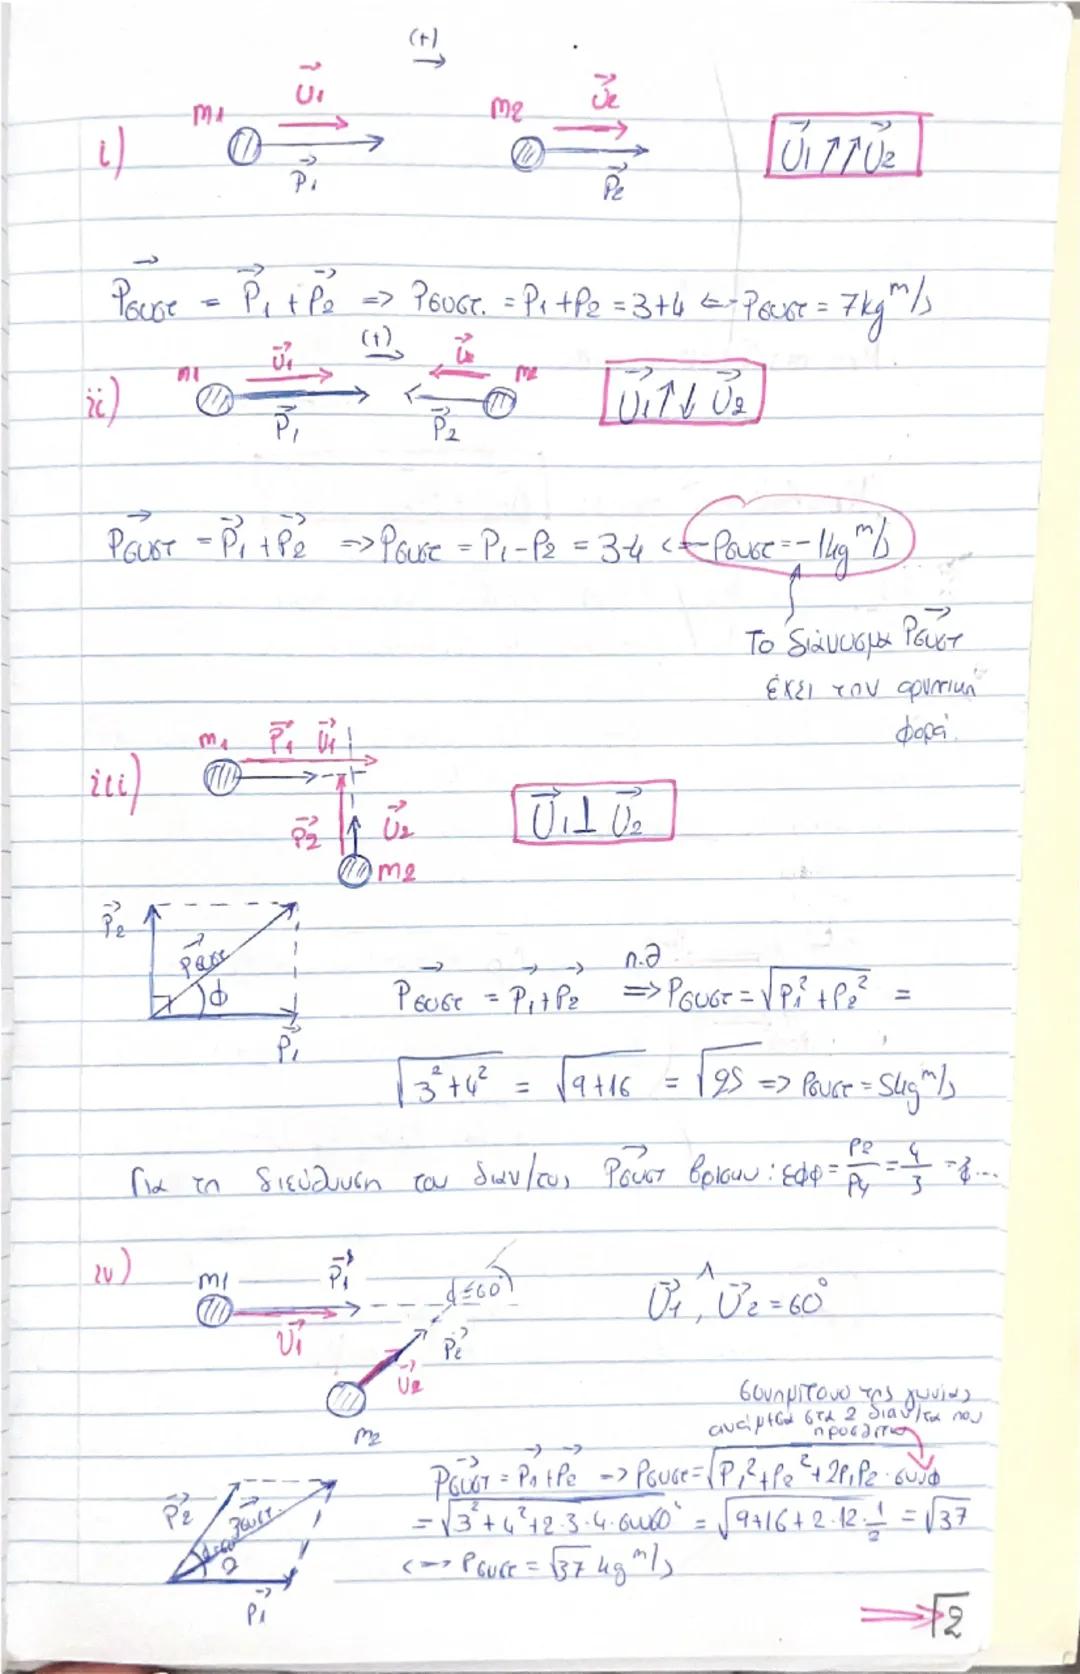 (+)
i) m1 υ⃗1 P⃗1 m2 υ⃗2 P⃗2 υ⃗1 ↑↑ υ⃗2
P⃗συστ = P⃗1 + P⃗2 => Pσυστ. = P1 + P2 = 3+4 <=> Pσυστ = 7kg m/s
(+)
ii) m1 υ⃗1 P⃗1 υ⃗2 m2 P⃗2 υ⃗1 ↑↓ υ⃗2
P⃗συστ = P⃗1 + P⃗2 => Pσυστ = P1 - P2 = 3-4 <=> Pσυστ = -1kg m/s
Το διάνυσμα P⃗συστ
έχει την αρνητική
φορά.
iii) m1 P⃗1 υ⃗1 P⃗2 υ⃗2 m2 υ⃗1 ⊥ υ⃗2
P⃗2 P⃗συστ φ P⃗1
P⃗συστ = P⃗1 + P⃗2 =π.θ=> Pσυστ = √P1² + P2² =
√3²+4² = √9+16 = √25 => Pσυστ = 5kg m/s
Για τη διεύθυνση του διαν/τος P⃗συστ βρίσκω: εφφ = P2/P1 = 4/3 => ...
iv) m1 P⃗1 υ⃗1 φ=60° P⃗2 υ⃗2 m2 υ⃗1, υ⃗2 = 60°
συνημίτονο της γωνίας
ανάμεσα στα 2 διαν/τα που
προσθέτω
P⃗συστ = P⃗1 + P⃗2 => Pσυστ = √P1² + P2² + 2P1P2·συνφ
= √3²+4²+2·3·4·συν60° = √9+16+2·12·1/2 = √37
<=> Pσυστ = √37 kg m/s
P⃗2 P⃗συστ. P⃗1
=> √2